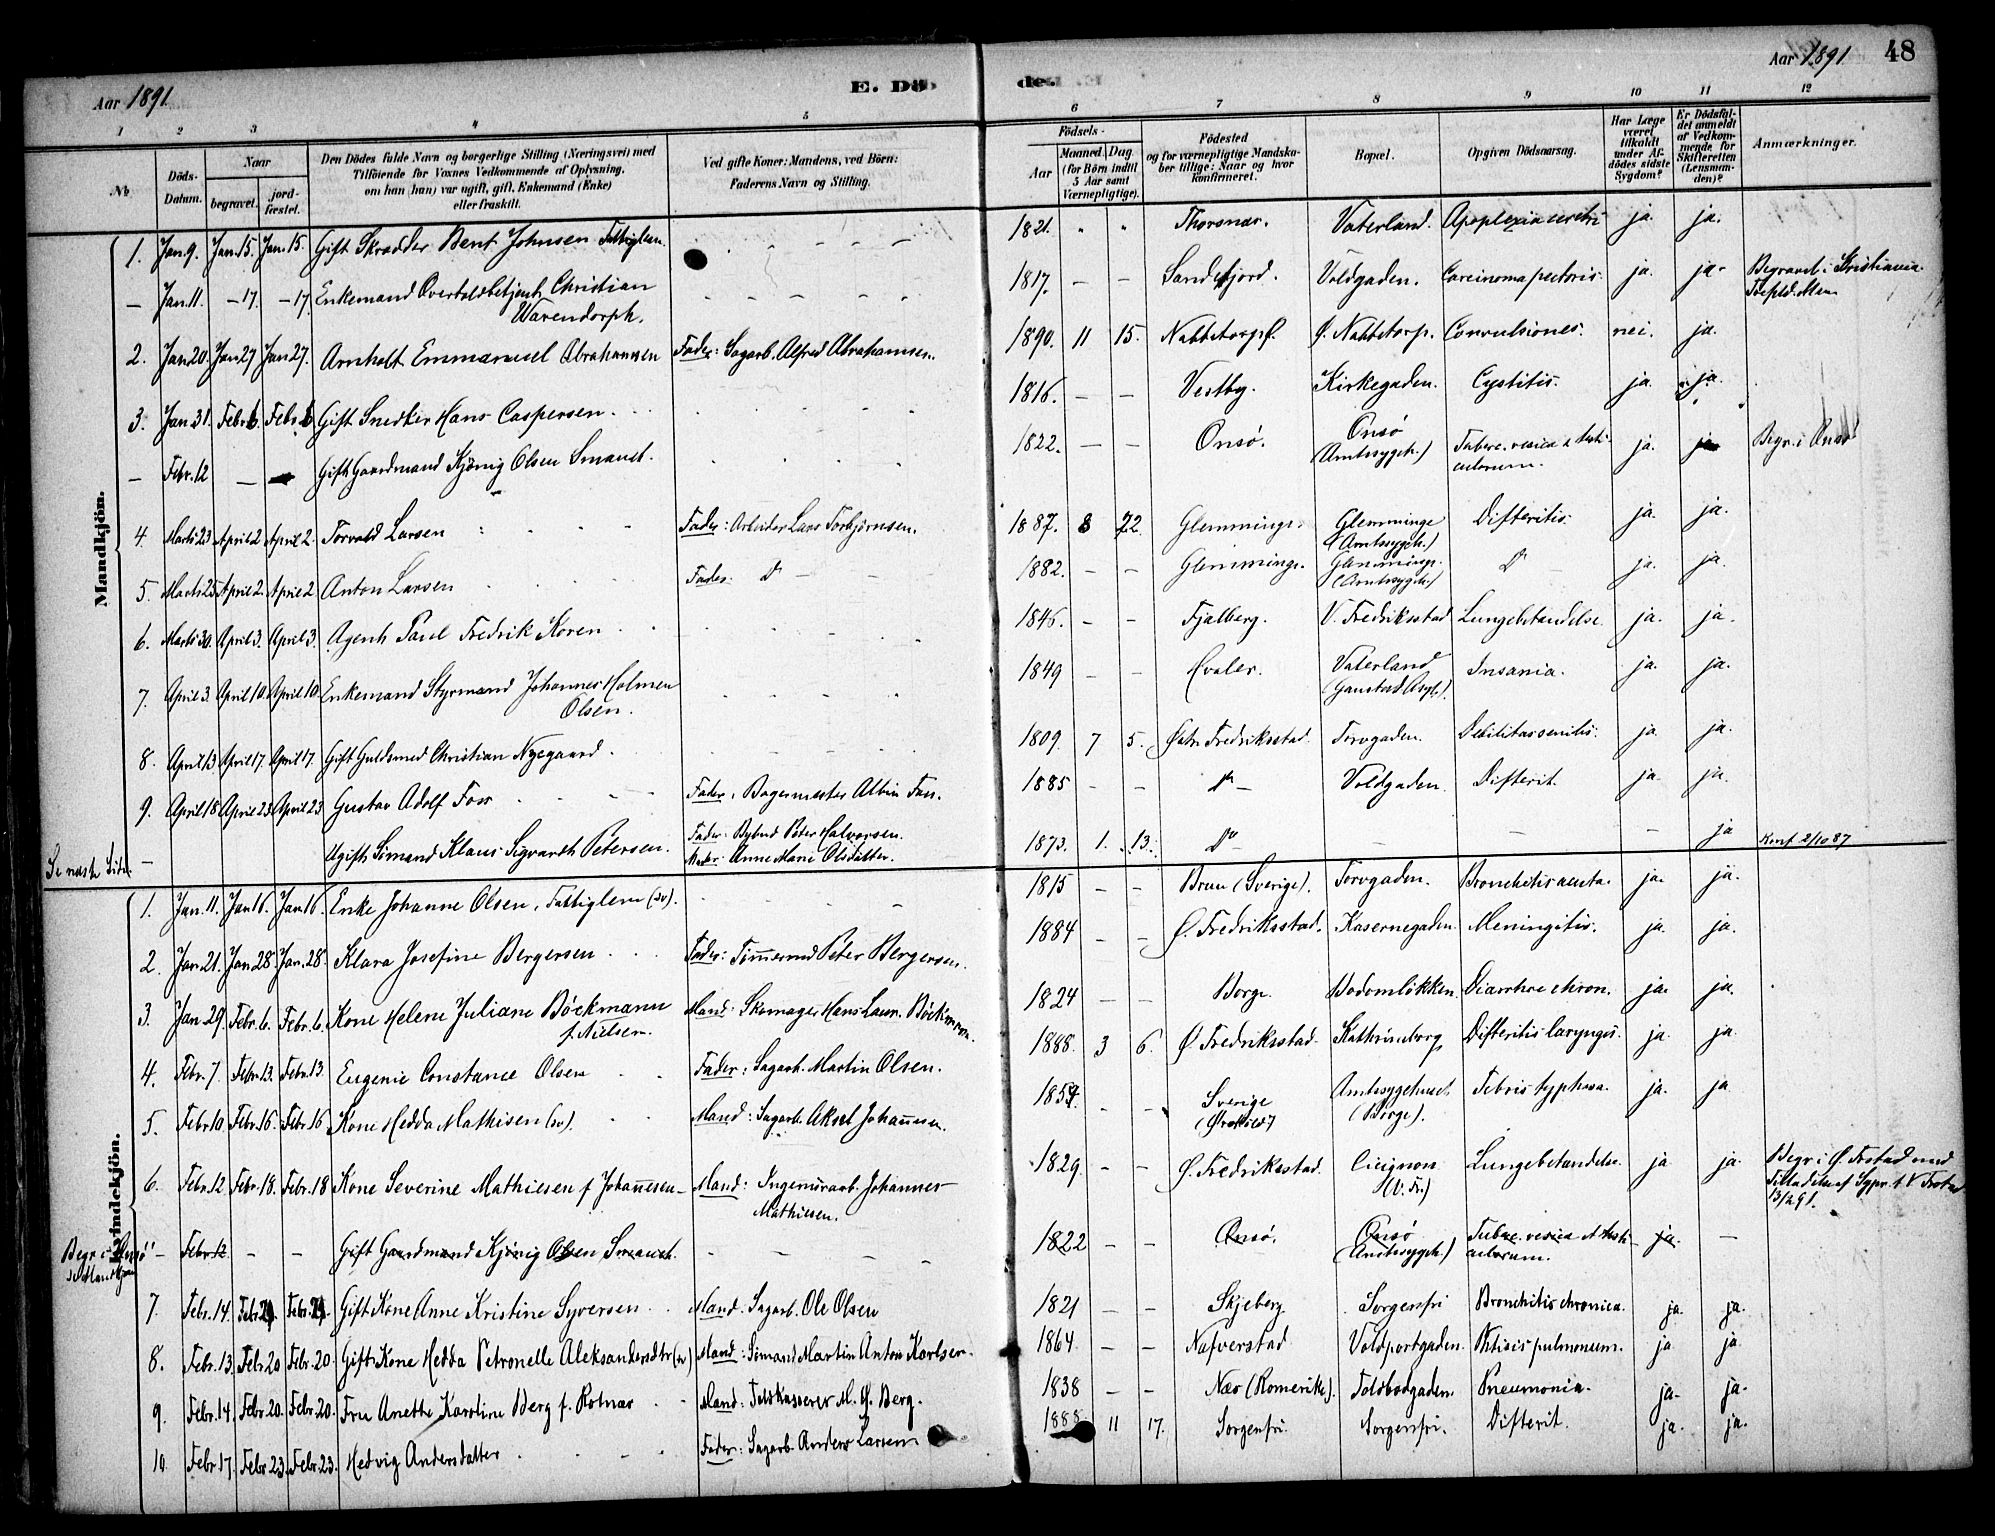 Aar 1891.
E. Dö
de.
Aar 1891
48
1 2 3 4 5
6 7 8 9 10 11 12
No
Döds-Datum.
Naar
begravet.
jord-fæstet.
Den Dödes fulde Navn og borgerlige Stilling (Næringsvei) med
Tilföiende for Voxnes Vedkommende af Oplysning,
om han (hun) var ugift, gift, Enkemand (Enke)
eller fraskilt.
Ved gifte Koner: Mandens, ved Börn:
Faderens Navn og Stilling.
Födsels-
Aar
Maaned. Dag
(for Börn indtil
5 Aar samt
Værnepligtige).
Födested
og for værnepligtige Mandska-
ber tillige: Naar og hvor
konfirmeret.
Bopæl.
Opgiven Dödsaarsag.
Har Læge
været
tilkaldt
under Af-
dödes sidste
Sygdom?
Er Dödsfal-
det anmeldt
af Vedkom-
mende for
Skifteretten
(Lensman-
den)?
Anmærkninger.
Mandkjön.
1. Jan. 9. Jan. 15. Jan. 15. Gift Skrædder Bent Johnsen Fattiglem. 1821. Thorsnæs. Vaterland. Apoplexia cerebri ja. ja.
— Jan. 11. — 17. — 17. Enkemand Overtoldbetjent Christian 1817. — — Sandefjord. Voldgaden. Carcinoma pectoris. ja. ja. Begravet i Kristiania
Warendorph.
2. Jan. 20. Jan 27 Jan. 27. Arnholt Emmanuel Abrahamsen Fader: Sagarb. Alfred Abrahamsen. 1890. 11 15. Nabbetorp Ø. Ø. Nabbetorp. Convulsiones. nei. ja.
3. Jan. 31. Febr. 6. Febr. 6 Gift Snedker Hans Caspersen. 1816. — — Vestby. Kirkegaden. Cystitis. ja. ja.
— Febr. 12 — — Gift Gaardmand Kjönig Olsen Smaust. 1822. — — Onsö. Onsö (Amtssygeh.) Tuberc. vesicæ & testi-culorum. ja. ja Begr. i Onsö
4. Marts 23 April 2 April 2. Torvald Larsen Fader: Arbeider Lars Torbjörnsen. 1887. 8 22. Glemminge. Glemminge (Amtssygeh.) Difteritis. ja. ja.
5. Marts 25 April 2. April 2 Anton Larsen Fader: Do — 1882. — — Glemminge. Glemminge. (Amtssygeh.) Do — ja. ja.
6. Marts 30. April 3. April 3. Agent Paul Fredrik Koren 1846. — — Fjelberg. V. Fredriksstad Lungebetændelse. ja. ja.
7. April 3 April 10. April 10. Enkemand Styrmand Johannes Holmen Olsen. 1849 — — Hvaler. Vaterland (Gaustad Asyl.) Insania. ja. ja.
8. April 13 April 17. April 17. Gift Guldsmed Christian Nygaard. 1809. 7 5. Østre Fredriksstad. Torvgaden. Debilitas senilis. ja ja.
9. April 18 April 23 April 23 Gustav Adolf Foss Fader: Bagermester Albin Foss. 1885 — — Do — Voldgaden. Difterit. ja. ja.
— Ugift Sömand Klaus Sigvardt Petersen. Fader: Bybud Peter Halvorsen. Moder: Anne Marie Olsdatter. 1873. 1. 13. Do — — — ja Konf 2/10 87
Se næste Side.
Kvindekjön.
1. Jan. 11. Jan 16. Jan. 16. Enke Johanne Olsen, Fattiglem (sv). 1815 — — Brun (Sverige). Torvgaden. Bronchitis acuta. ja. ja.
2. Jan. 21. Jan 28. Jan. 28. Klara Josefine Bergersen Fader: Tömmermd Peter Bergersen. 1884 — — Ø. Fredriksstad. Kasernegaden. Meningitis. ja. ja.
3. Jan 29. Febr. 6. Febr. 6. Kone Helene Juliane Böckmann f. Nielsen. Mand: Skomager Hans Laur. Böckmann. 1824 — — Borge. Bodomlökken. Diarrhoe chron. ja. ja.
4. Febr. 7 Febr. 13. Febr. 13. Eugenie Constance Olsen Fader: Sagarb. Martin Olsen. 1888. 3 6. Ø. Fredriksstad. Kathrineborg. Difteritis laryngis. ja. ja.
5. Febr 10 Febr. 16 Febr 16 Kone Hedda Mathisen (sv). Mand: Sagarb. Aksel Johansen. 1857. — — Sverige Amtssygehuset (Borge). Febris typhosa. ja. ja
6. Febr. 12 Febr. 18. Febr. 18 Kone Severine Mathiesen f Johannesen Mand: Ingeniörarb. Johannes Mathiesen. 1829. — — Ø. Fredriksstad. Cicignon (V. Fr.) Lungebetændelse. ja ja. Begr. i Ø. Frstad med
Tilladelse af Sgpr. t. V Frstad
13/2 91.
Begr. i Onsö se Mandkjön — Febr. 12 — — Gift Gaardmand Kjönig Olsen Smaust. — — 1822 — — Onsö. Onsö (Amtssygeh.) Tuberc. vesicæ et testi-culorum. ja. —
7. Febr. 14. Febr. 21. Febr. 21. Gift Kone Anne Kristine Syversen Mand: Sagarb. Ole Olsen 1821 — — Skjeberg. Sorgenfri Bronchitis chronica. ja. ja.
8. Febr. 13. Febr 20 Febr. 20. Gift Kone Hedda Petronelle Aleksandersdtr (sv) Mand: Sömand Martin Anton Karlsen. 1864. — — Nafverstad. Voldportgaden. Phtisis pulmonum. ja ja.
9. Febr. 14. Febr. 20. Febr. 20. Fru Anette Karoline Berg f. Rotnæs Mand: Toldkasserer M. H. Berg. 1838 — — Næs (Romerike). Toldbodgaden. Pneumonia. ja. ja.
10. Febr. 17. Febr. 23. Febr. 23. Hedvig Andersdatter Fader: Sagarb. Anders Larsen 1888. 11 17. Sorgenfri. Sorgenfri. Difterit. ja. ja.